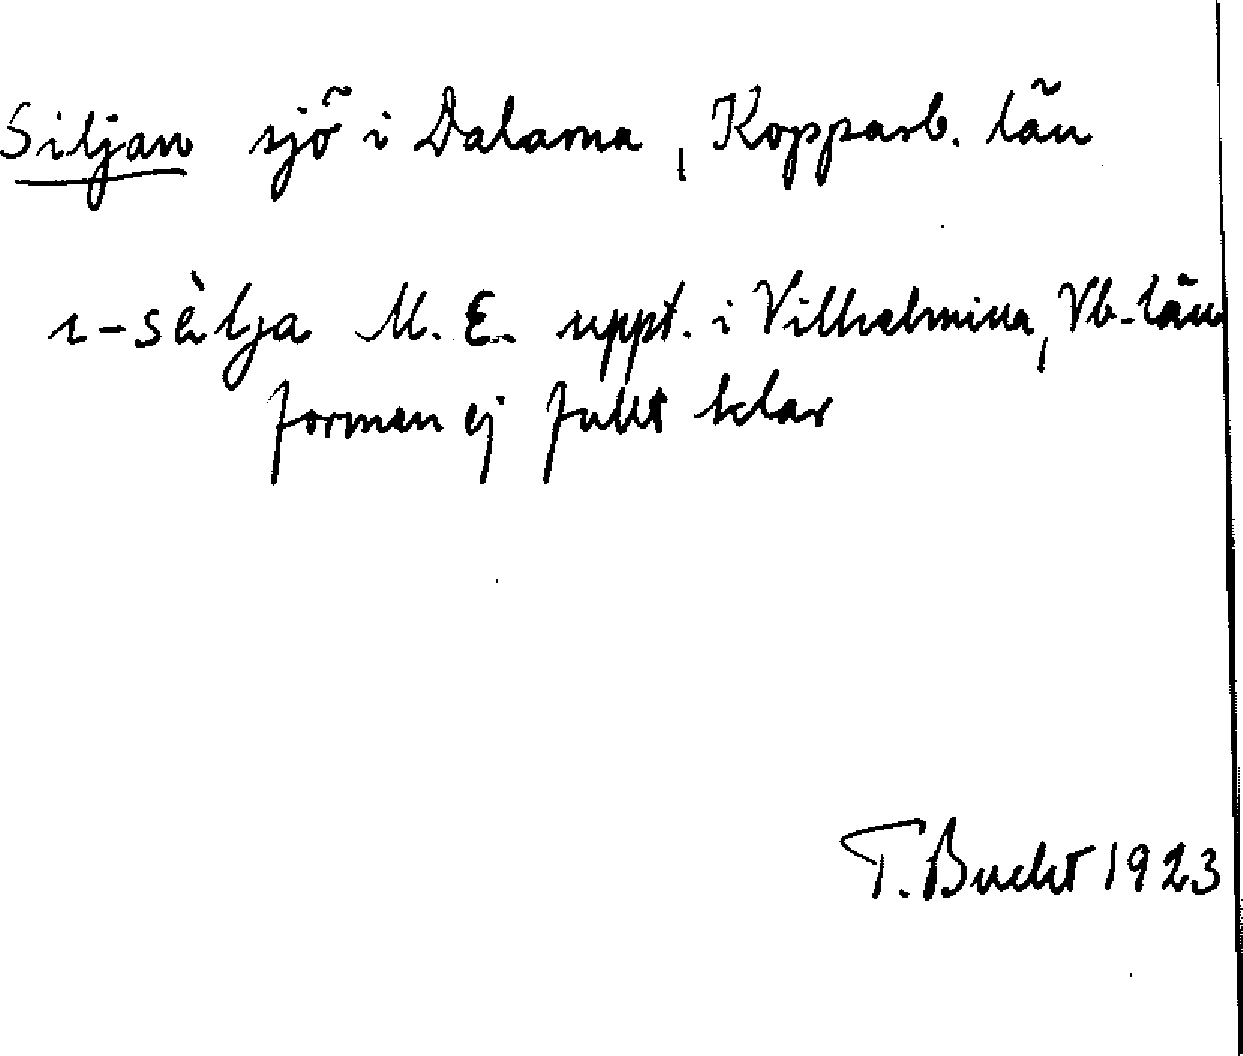 Siljan sjö i Dalarna, Kopparb. län
ɩ-sèlja M. E. uppt. i Vilhelmina, Vb-län
formen ej fullt klar
T. Bucht 1923